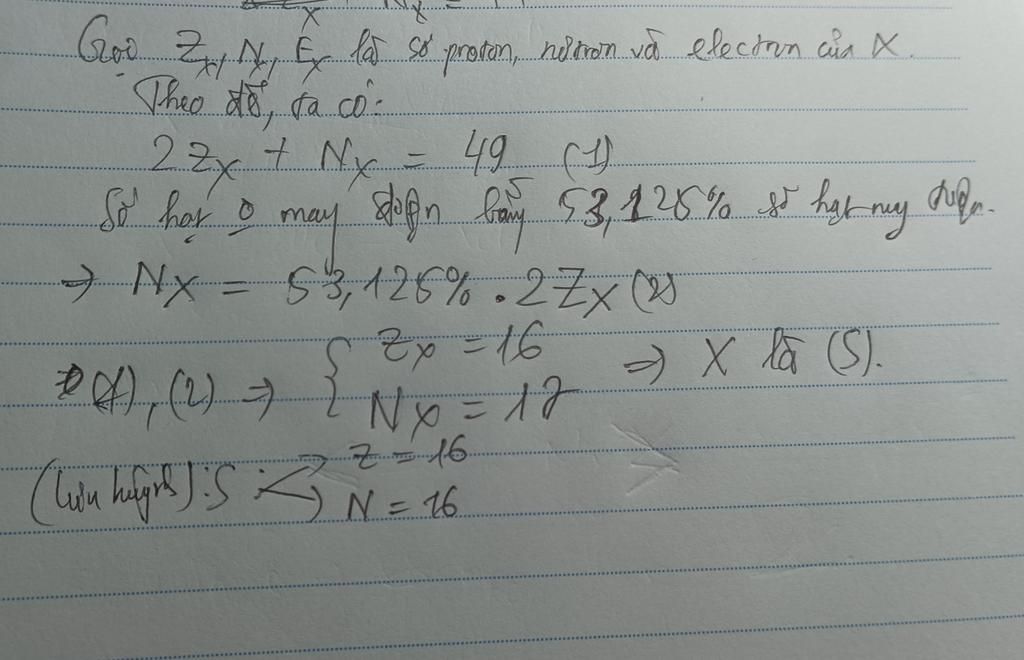 X N_X =
Gọi Z_X, N_X, E_X là số proton, nơtron và electron của X.
Theo đề, ta có:
2Z_X + N_X = 49 (1)
Số hạt o may điện bằng 53,125% số hạt my điện.
→ N_X = 53,125% . 2Z_X (2)
(1), (2) ⇒ { Z_X = 16 N_X = 17 ⇒ X là (S).
(Lưu huỳnh): S : Z = 16
N = 16